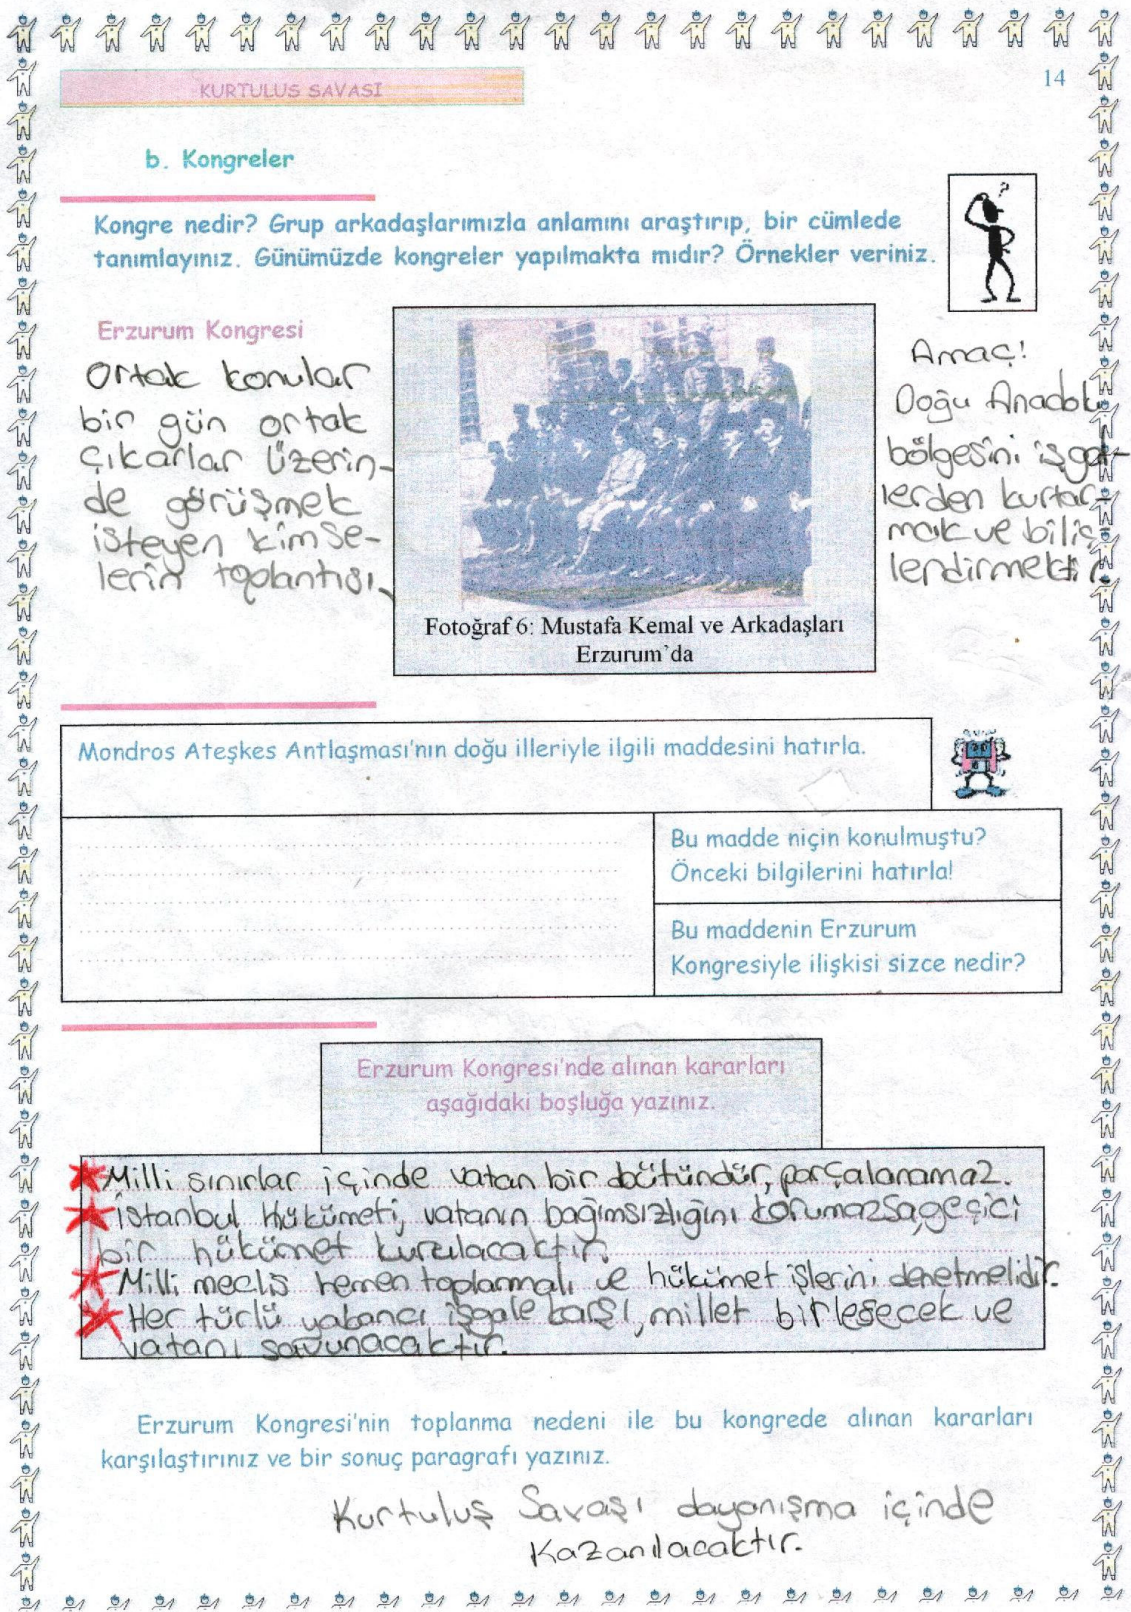 KURTULUS SAVASI
14
b. Kongreler
Kongre nedir? Grup arkadaşlarımızla anlamını araştırıp, bir cümlede
tanımlayınız. Günümüzde kongreler yapılmakta mıdır? Örnekler veriniz.
?
Erzurum Kongresi
Ortak konular
bir gün ortak
çıkarlar üzerin-
de görüşmek
isteyen kimse-
lerin toplantısı
Fotoğraf 6: Mustafa Kemal ve Arkadaşları
Erzurum'da
Amaç!
Doğu Anadolu
bölgesini işgal-
lerden kurtar-
mak ve biliç-
lendirmektir.
Mondros Ateşkes Antlaşması'nın doğu illeriyle ilgili maddesini hatırla.
Bu madde niçin konulmuştu?
Önceki bilgilerini hatırla!
Bu maddenin Erzurum
Kongresiyle ilişkisi sizce nedir?
Erzurum Kongresi'nde alınan kararları
aşağıdaki boşluğa yazınız.
Milli sınırlar içinde vatan bir bütündür, parçalanamaz.
İstanbul Hükümeti, vatanın bağımsızlığını korumazsa geçici
bir hükümet kurulacaktır.
Milli meclis hemen toplanmalı ve hükümet işlerini denetmelidir.
Her türlü yabancı işgale karşı, millet birleşecek ve
vatanı savunacaktır.
Erzurum Kongresi'nin toplanma nedeni ile bu kongrede alınan kararları
karşılaştırınız ve bir sonuç paragrafı yazınız.
Kurtuluş Savaşı dayanışma içinde
Kazanılacaktır.